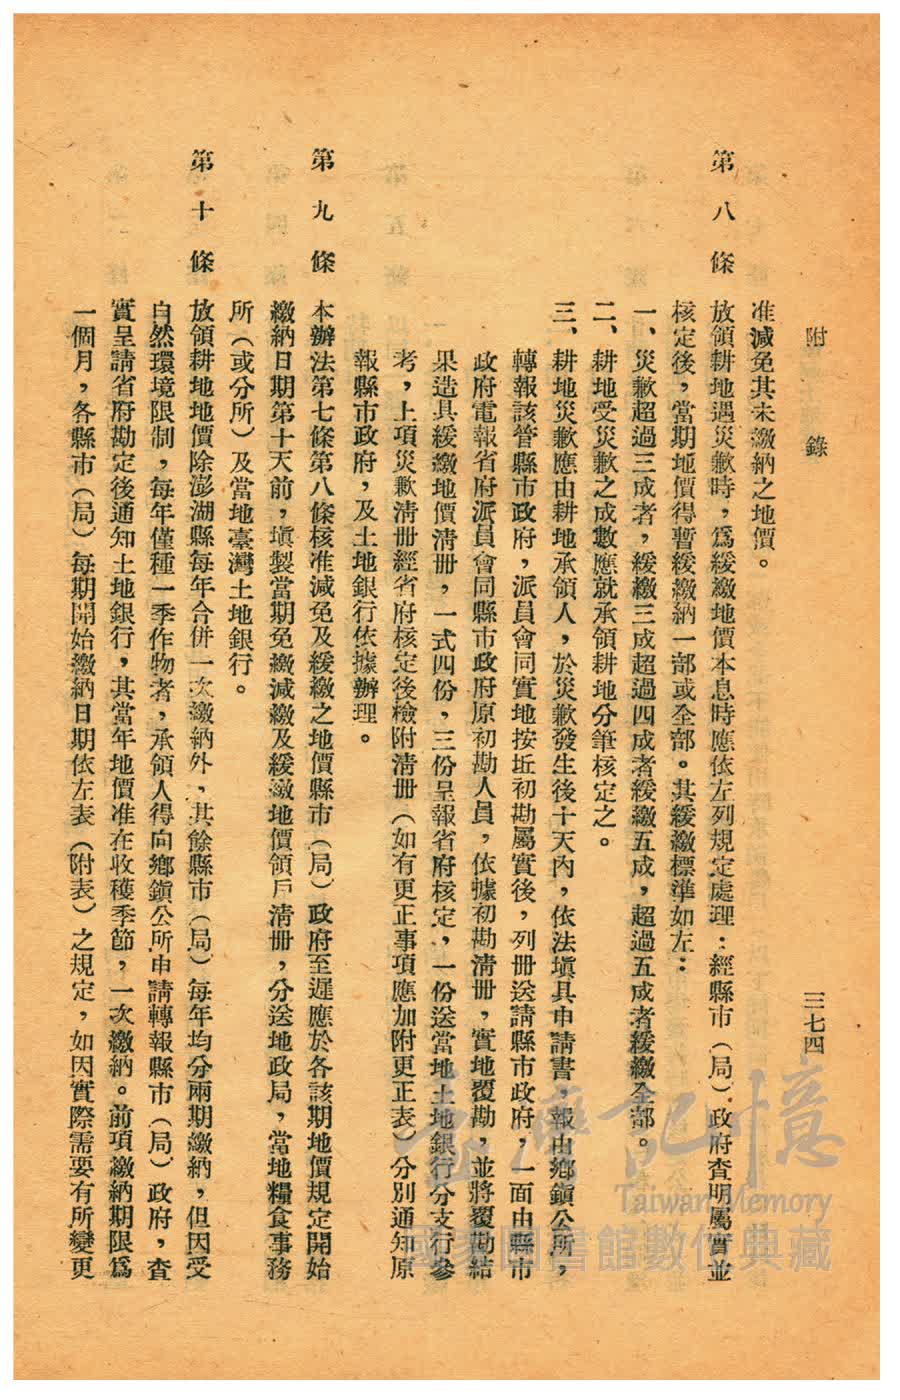 附錄
三七四
准減免其未繳納之地價。
第八條　放領耕地遇災歉時，爲緩繳地價本息時應依左列規定處理：經縣市（局）政府查明屬實並
核定後，當期地價得暫緩繳納一部或全部。其緩繳標準如左：
一、災歉超過三成者，緩繳三成超過四成者緩繳五成，超過五成者緩繳全部。
二、耕地受災歉之成數應就承領耕地分筆核定之。
三、耕地災歉應由耕地承領人，於災歉發生後十天內，依法塡具申請書，報由鄉鎭公所，
轉報該管縣市政府，派員會同實地按坵初勘屬實後，列册送請縣市政府，一面由縣市
政府電報省府派員會同縣市政府原初勘人員，依據初勘清册，實地覆勘，並將覆勘結
果造具緩繳地價清册，一式四份，三份呈報省府核定，一份送當地土地銀行分支行參
考，上項災歉清册經省府核定後檢附清册（如有更正事項應加附更正表）分別通知原
報縣市政府，及土地銀行依據辦理。
第九條　本辦法第七條第八條核准減免及緩繳之地價縣市（局）政府至遲應於各該期地價規定開始
繳納日期第十天前，塡製當期免繳減繳及緩繳地價領戶清册，分送地政局，當地糧食事務
所（或分所）及當地臺灣土地銀行。
第十條　放領耕地地價除澎湖縣每年合併一次繳納外，其餘縣市（局）每年均分兩期繳納，但因受
自然環境限制，每年僅種一季作物者，承領人得向鄉鎭公所申請轉報縣市（局）政府，查
實呈請省府勘定後通知土地銀行，其當年地價准在收穫季節，一次繳納。前項繳納期限爲
一個月，各縣市（局）每期開始繳納日期依左表（附表）之規定，如因實際需要有所變更
臺灣記憶
Taiwan Memory
國家圖書館數位典藏